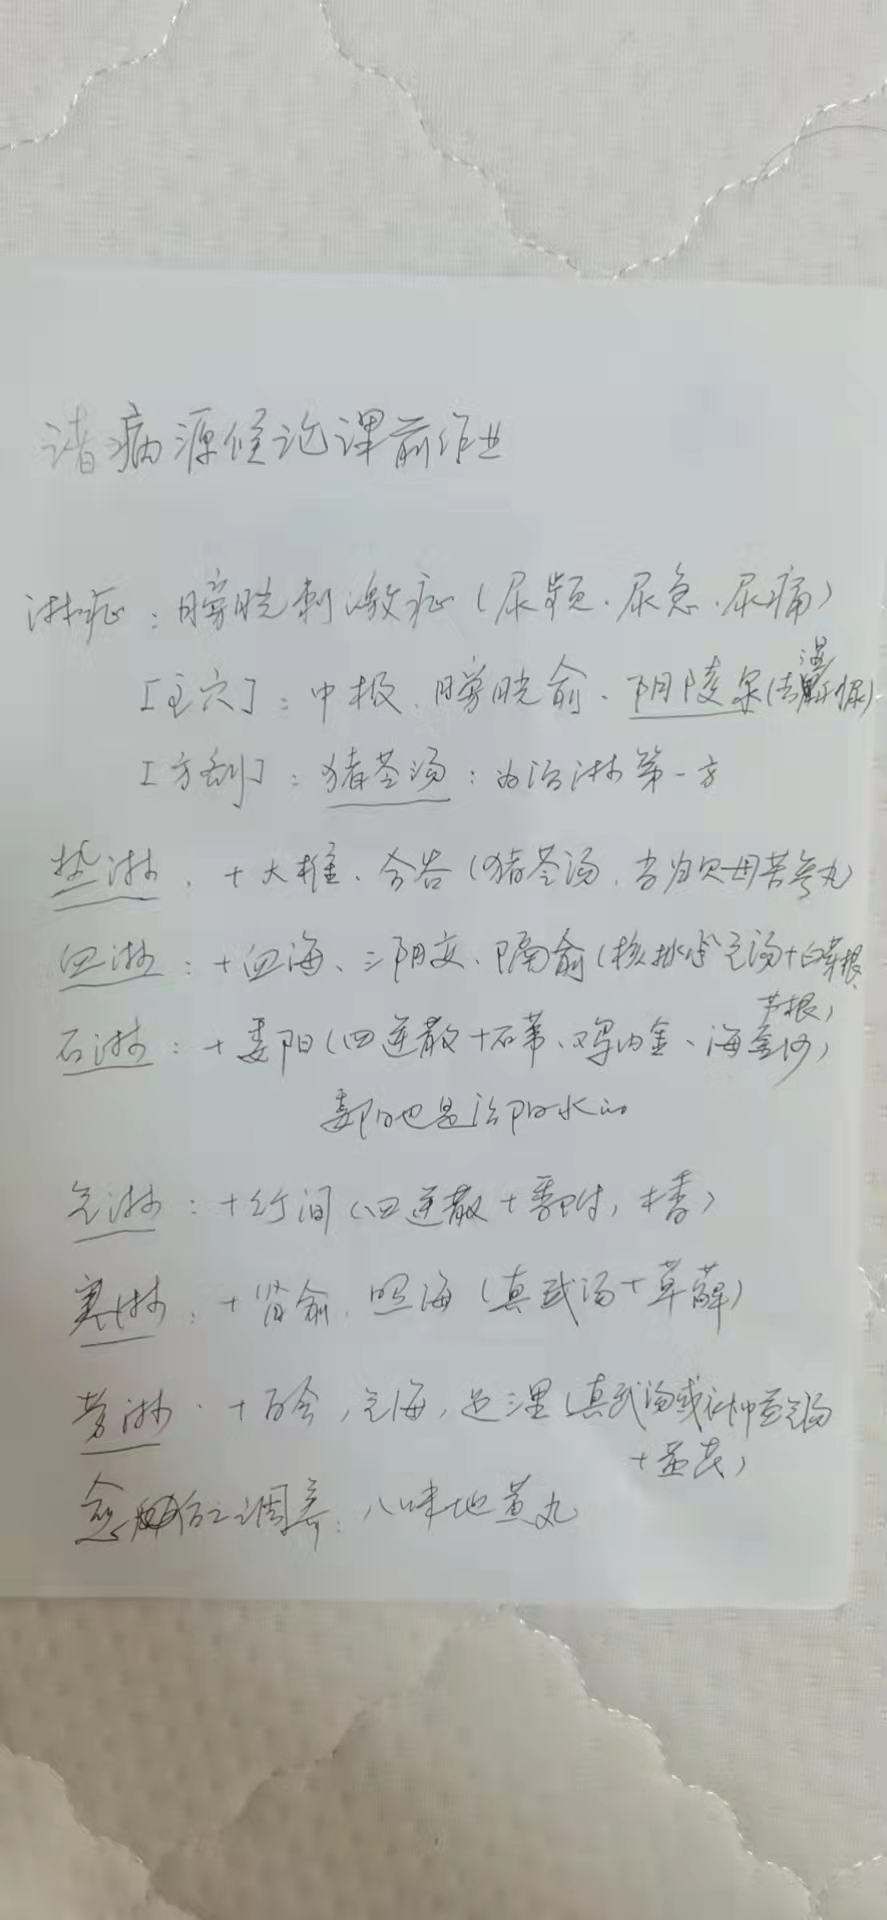 诸病源候论课前作业
淋症：膀胱刺激症（尿频．尿急．尿痛）
［主穴］：中极、膀胱俞、阴陵泉（去湿利尿）
［方剂］：猪苓汤：为治淋第一方
热淋、+大椎、合谷（猪苓汤、当归贝母苦参丸）
血淋：+血海、三阴交、膈俞（桃核承气汤+白茅根、
芦根）
石淋：+委阳（四逆散+石苇、鸡内金、海金沙）
委阳也是治阳水的
气淋：+行间（四逆散+香附，木香）
寒淋：+肾俞、照海（真武汤+草薢）
劳淋．+百会，气海，足三里（真武汤或补中益气汤
+黄芪）
愈后之调养：八味地黄丸